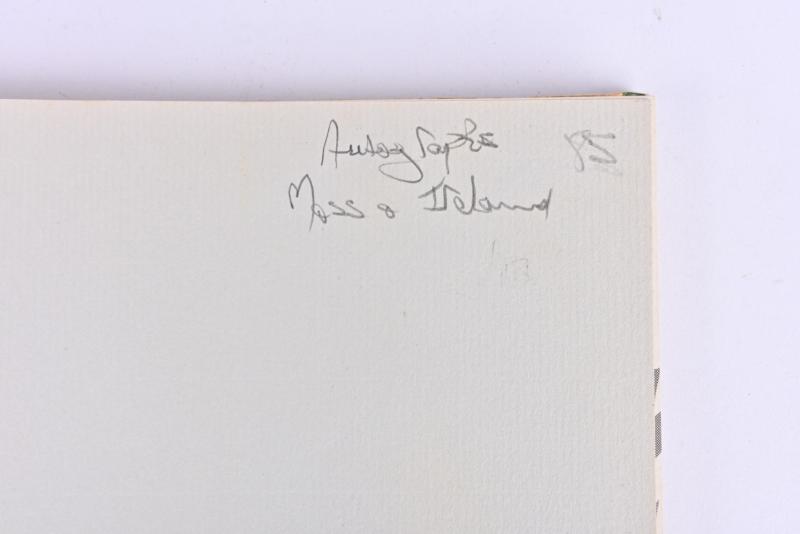 Autographs 85
Moss & Ireland